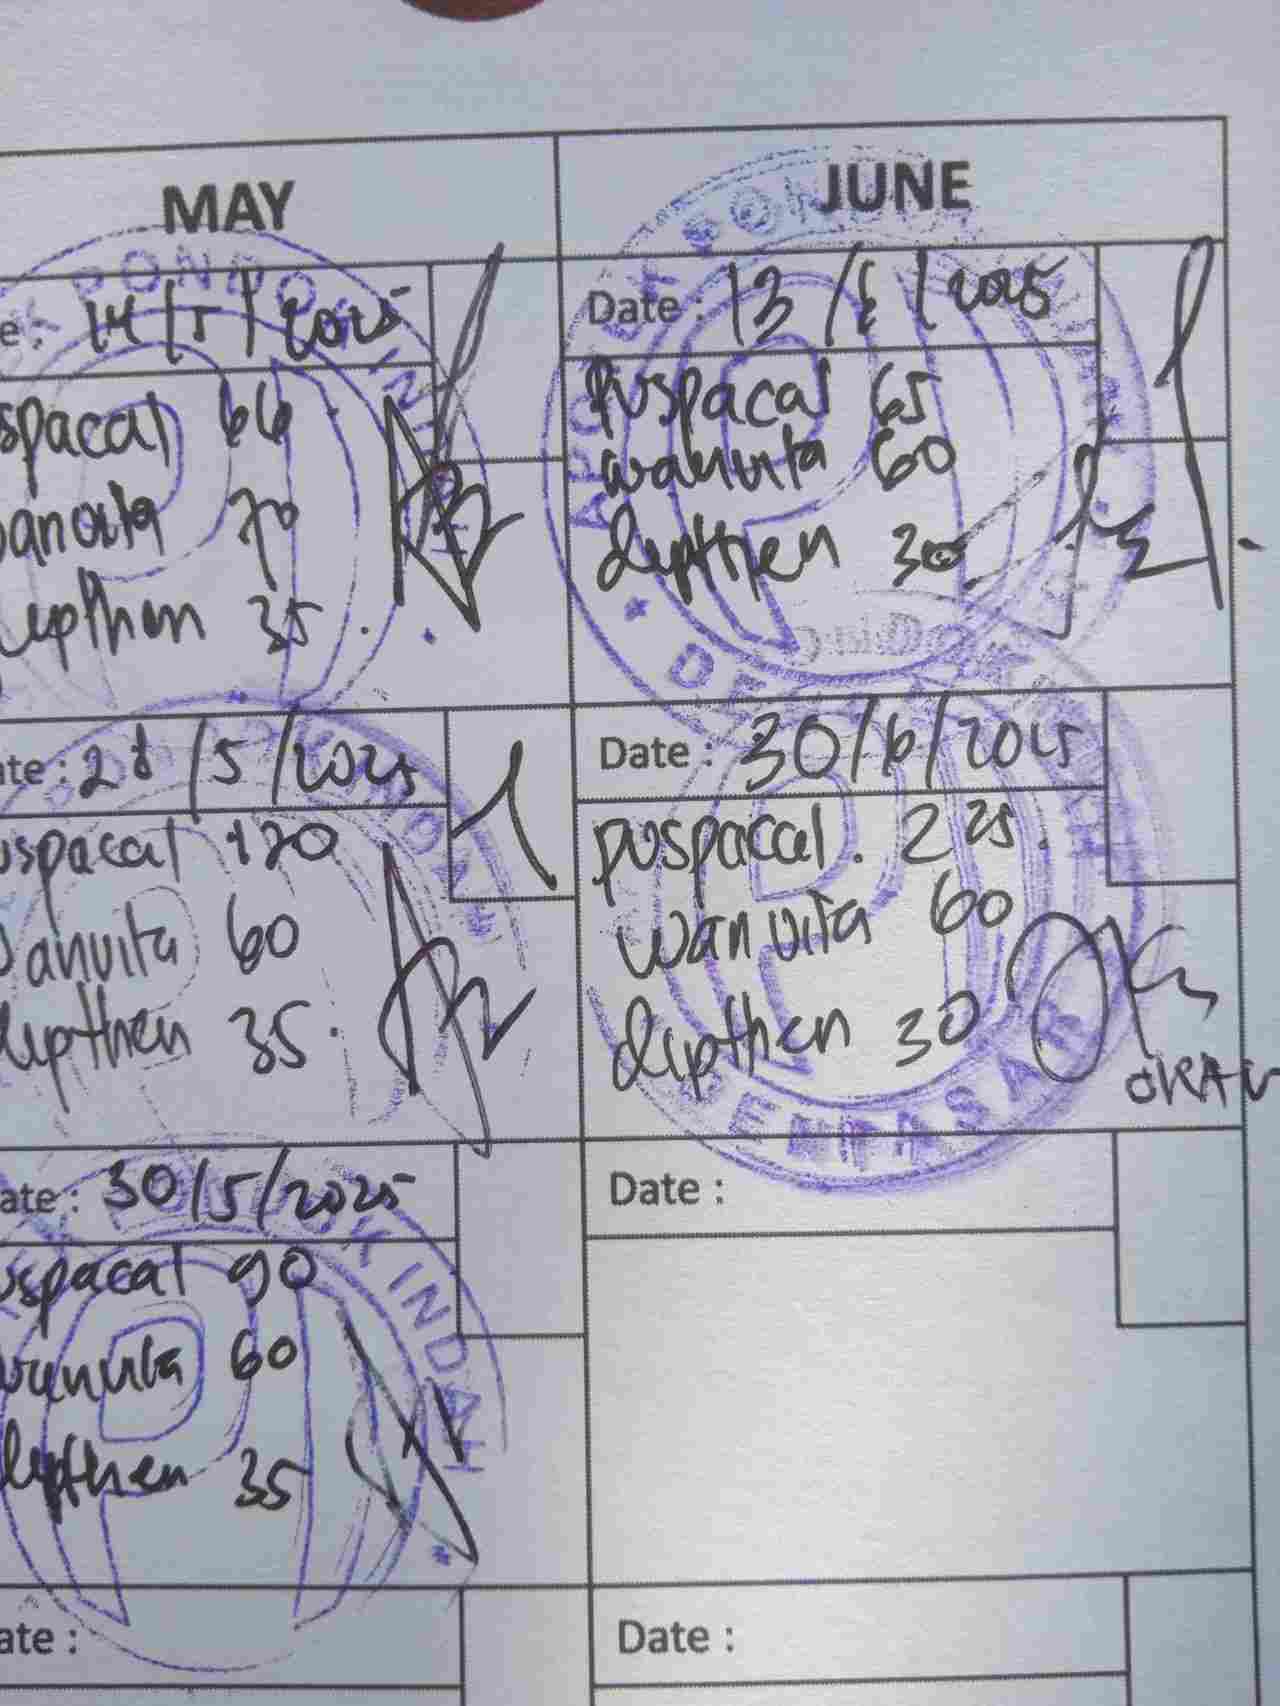 MAY
14/5/2025
spacal 66
anvita 70
epthen 35.
ate : 28/5/2025
uspacal 120
wanvita 60
depthen 35.
ate : 30/5/2025
uspacal 90
wanvita 60
depthen 35
ate :
JUNE
Date : 13/6/2025
puspacal 65
wanvita 60
depthen 30
Date : 30/6/2025
puspacal. 225.
wanvita 60
depthen 30
Date :
Date :
PONDOK INDAH
DENPASAR